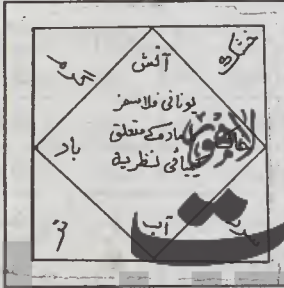 خشک
آتش
گرم
یونانی فلاسفر
مادہ کے متعلق
کیمیائی نظریہ
خاک
باد
آب
تر